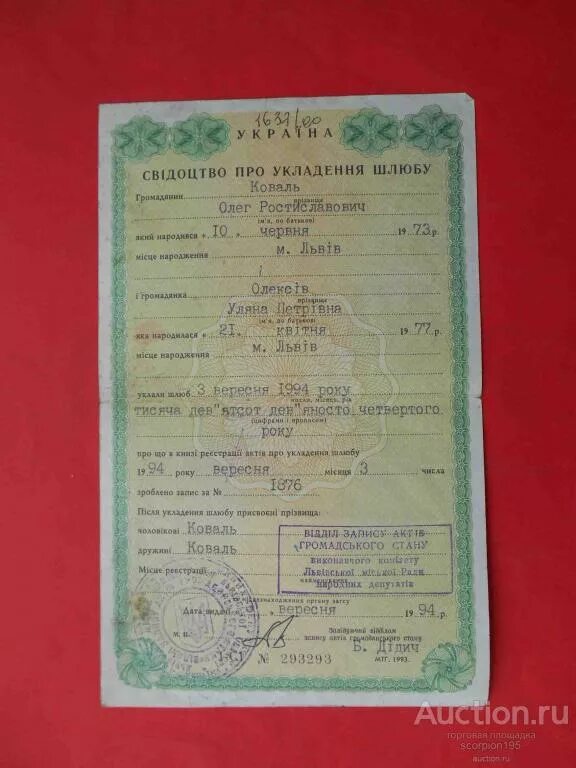 1637/00
УКРАЇНА
СВІДОЦТВО ПРО УКЛАДЕННЯ ШЛЮБУ
Громадянин Коваль
прізвище
Олег Ростиславович
ім'я, по батькові
який народився « 10 » червня 1973 р.
місце народження м. Львів
і
і громадянка Олексів
прізвище
Уляна Петрівна
ім'я, по батькові
яка народилася « 21 » квітня 1977 р.
місце народження м. Львів
уклали шлюб 3 вересня 1994 року
число, місяць, рік
тисяча дев"ятсот дев"яносто четвертого
(цифрами і прописом)
року
про що в книзі реєстрації актів про укладення шлюбу
1994 року вересня місяця 3 числа
зроблено запис за № 1876
Після укладення шлюбу присвоєні прізвища:
чоловікові Коваль
дружині Коваль
Місце реєстрації
ВІДДІЛ ЗАПИСУ АКТІВ
ГРОМАДСЬКОГО СТАНУ
виконавчого комітету
Львівської міської Ради
народних депутатів
найменування
місцезнаходження органу загсу
Дата видачі вересня 1994 р.
М. П.
Завідуючий відділом
запису актів громадянського стану
В. Дідич
№ 293293
МТГ. 1993.
Auction.ru
торговая площадка
scorpion195
auction.ru